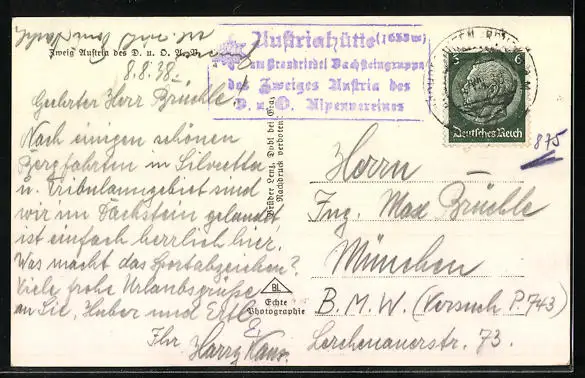 Zweig Austria des D. u. O. A. V.
8.8.38
Geehrter Herr Brüchle!
Nach einigen schönen
Bergfahrten in Silvretta
u. Tribulaungebiet sind
wir im Dachstein gelandet,
ist einfach herrlich hier.
Was macht das Sportabzeichen?
Viele frohe Urlaubsgrüße
an Sie, Huber und Ertl
Ihr Harry
Brüder Lenz, Dobl bei Graz
Nachdruck verboten.
BL
Echte
Photographie
Austriahütte (1638 m)
am Brandriedel Dachsteingruppe
des Zweiges Austria des
D. u. O. Alpenvereines
6 6
Deutsches Reich
875
Herrn
Ing. Max Brüchle
München
B.M.W. (Versuch P743)
Lerchenauerstr. 73.